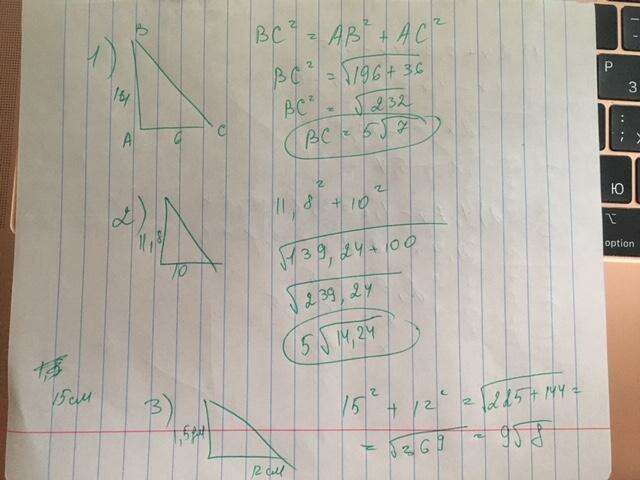 1)
B
14
A
6
C
BC² = AB² + AC²
BC² = √196+36
BC² = √232
BC = 5√7
2)
11,8
10
11,8² + 10²
√139,24+100
√239,24
5√14,24
15см
3)
1,5дм
12см
15² + 12² = √225+144 =
= √369 = 9√8
P
З
: ;
Ю
option